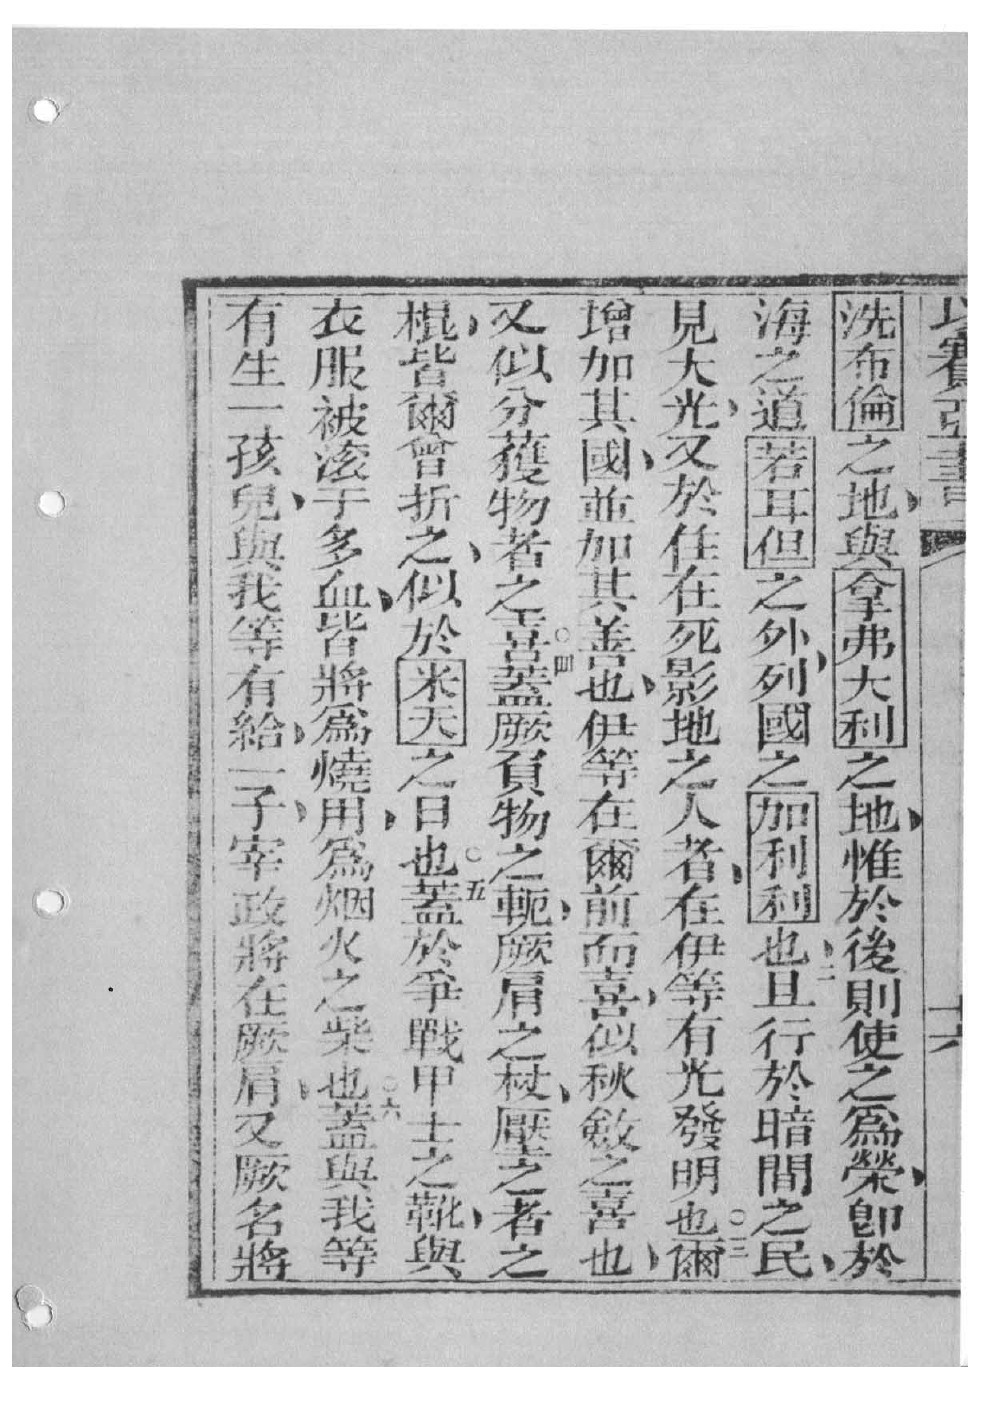 以賽亞書
十六
洗布倫之地與拿弗大利之地惟於後則使之爲榮卽於
海之道若耳但之外列國之加利利也二且行於暗間之民
見大光又於住在死影地之人者在伊等有光發明也〇三爾
增加其國並加其善也伊等在爾前而喜似秋斂之喜也
又似分獲物者之喜〇四蓋厥負物之軛厥肩之杖壓之者之
棍皆爾會折之似於米天之日也〇五蓋於爭戰甲士之靴與
衣服被滚于多血皆將爲燒用爲烟火之柴也〇六蓋與我等
有生一孩兒與我等有給一子宰政將在厥肩又厥名將